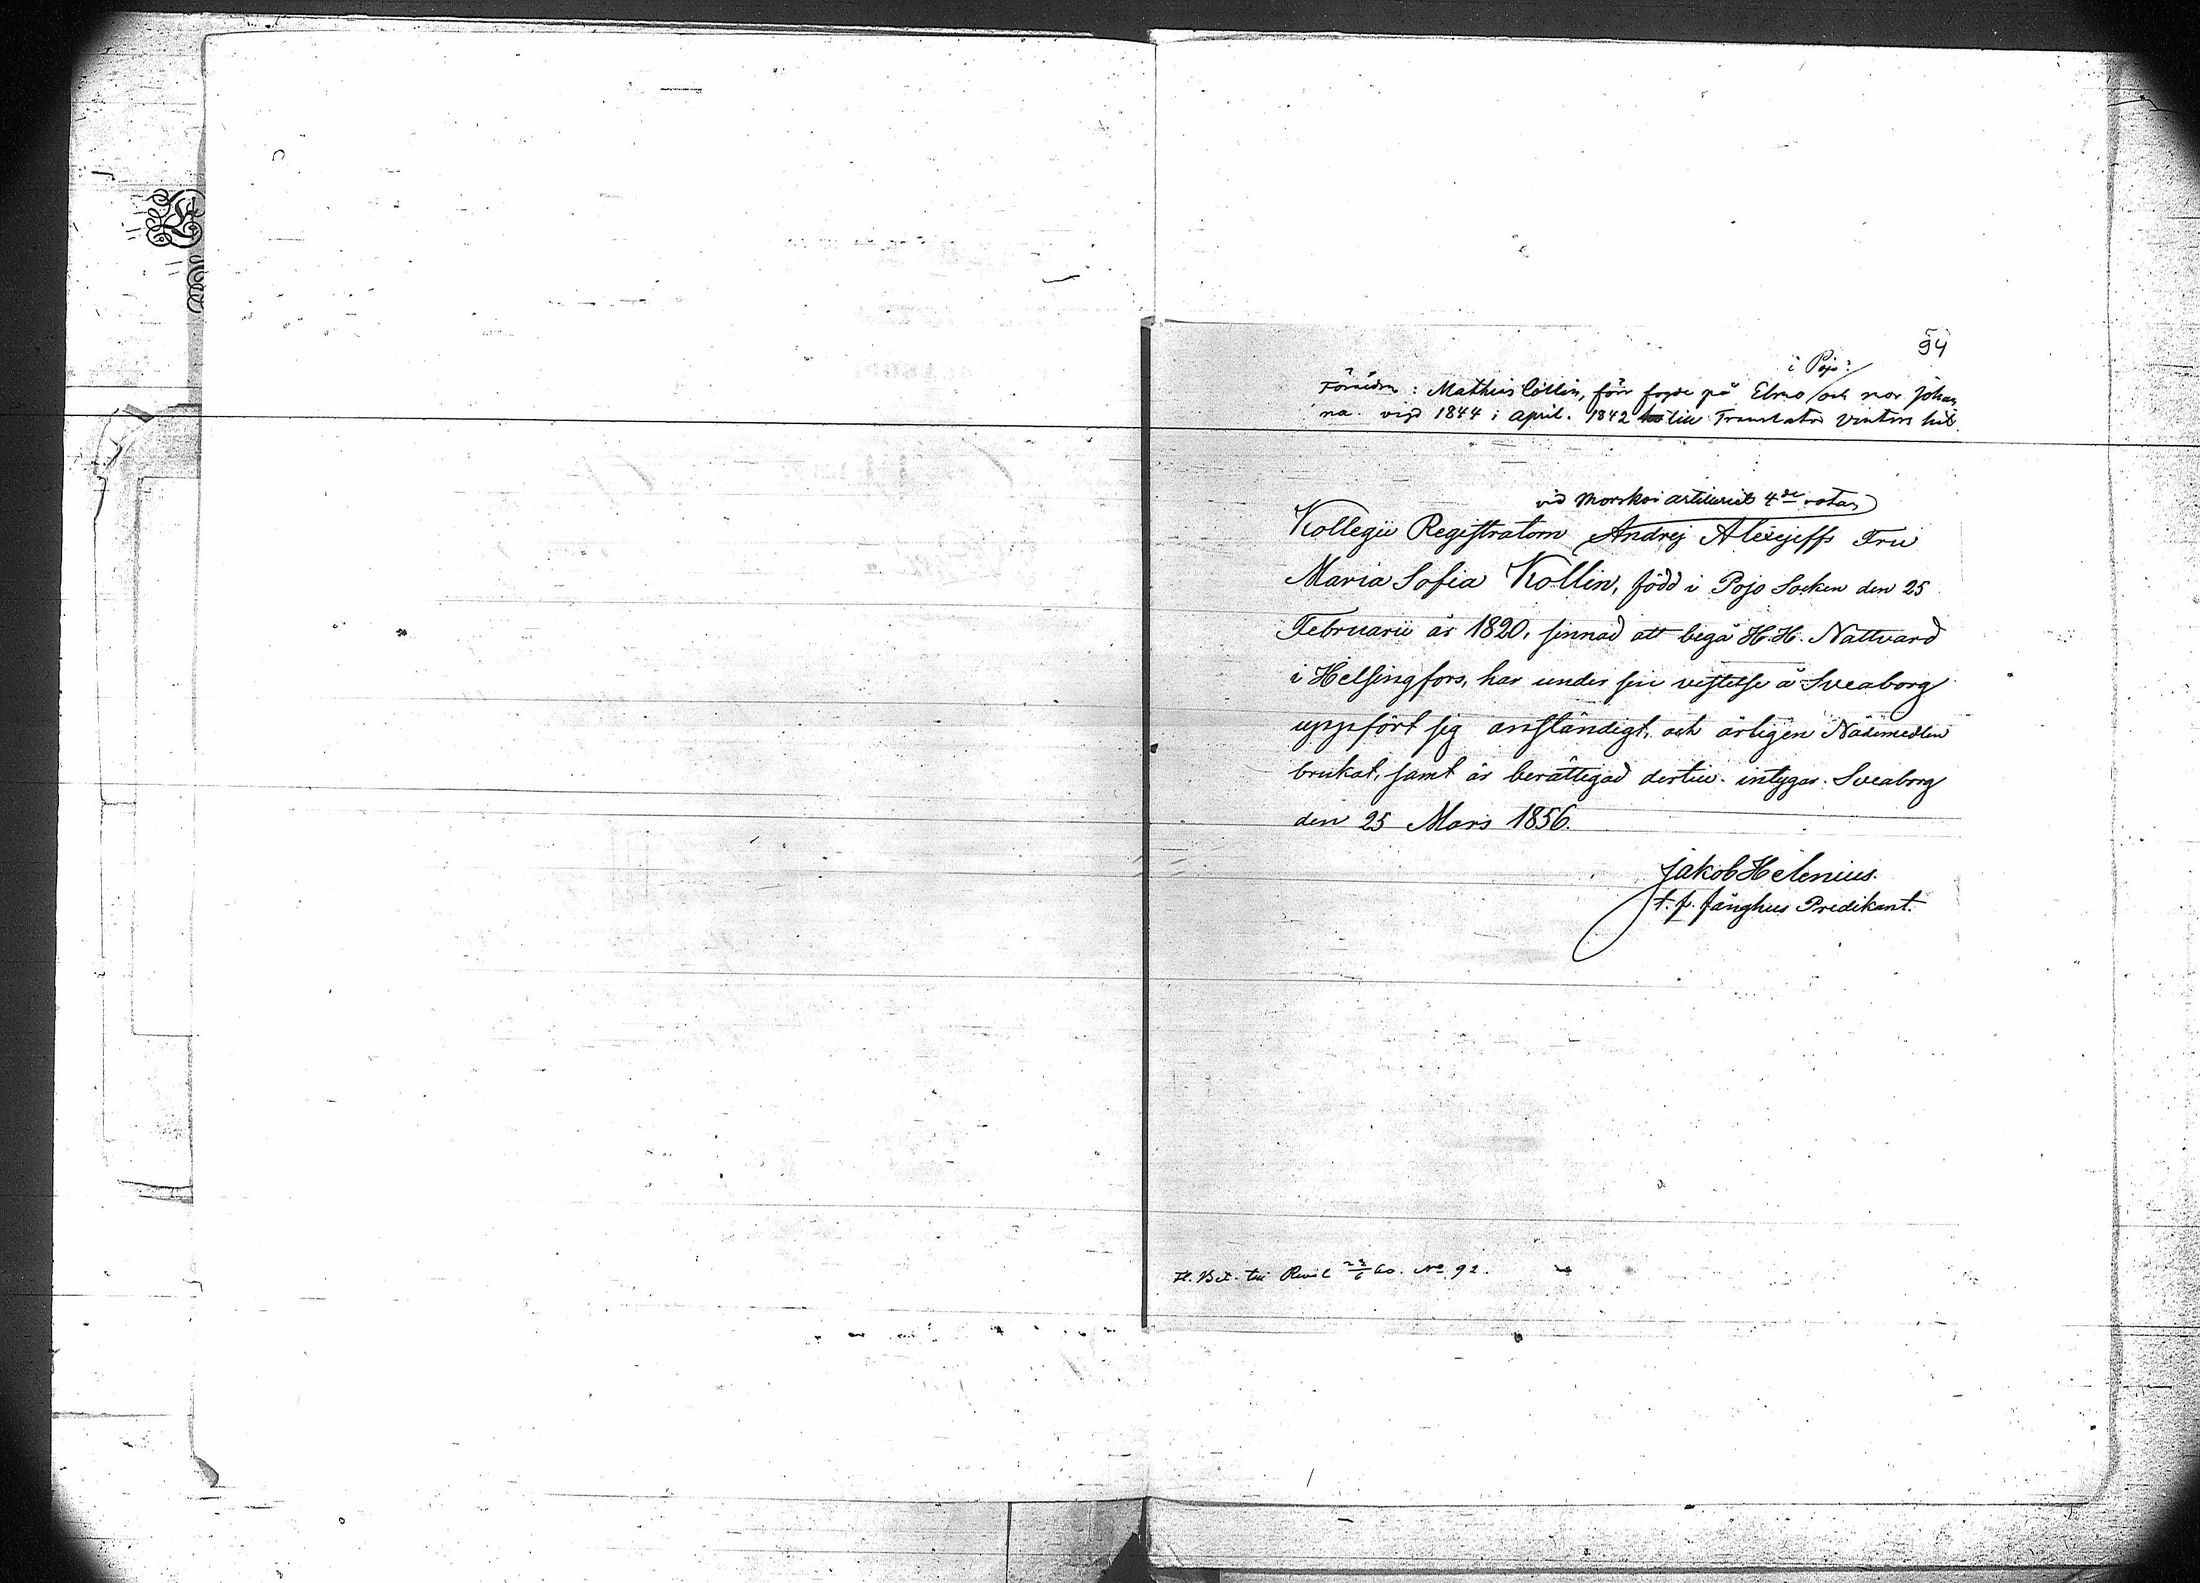 94
i Pojo
Föräldrar: Mathias Collin, förr fogde på Elmo och mor Johan
na. vigd 1844 i April. 1842 till Translator
vid Morskoi artilleriets 4de rotan
Kollegii Registratorn Andrej Alexejeffs Fru
Maria Sofia Kollin, född i Pojo Socken den 25
Februarii år 1820, sinnad att begå H.H. Nattvard
i Helsingfors, har under sin vistelse å Sveaborg
uppfört sig anständigt, och årligen Nådemedlen
brukat, samt är berättigad dertill. intygar. Sveaborg
den 25 Mars 1856.
Jakob Helenius.
t.f. fånghus Predikant.
Fl. Bet. till 22/6 60. No 92.